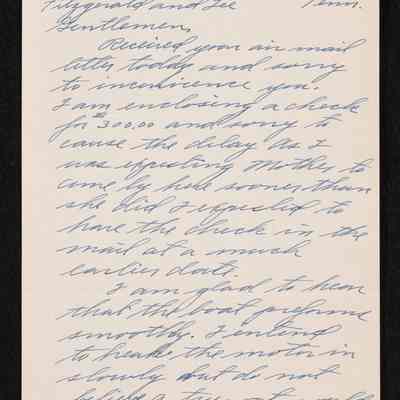 Fitzgerald and Lee Penn.
Gentlemen,
Received your air mail
letter today and sorry
to inconvience you.
I am enclosing a check
for $300.00 and sorry to
cause the delay as I
was expecting Mother to
come by here sooner than
she did I expected to
have the check in the
mail at a much
earlier date.
I am glad to hear
that the boat preforms
smoothly. I intend
to break the motor in
slowly but do not